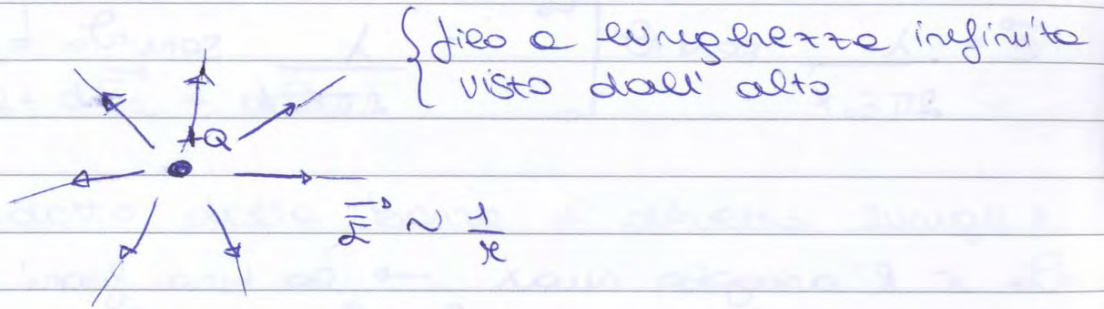 { filo a lunghezza infinita
visto dall'alto
+Q
E⃗ ~ 1/r